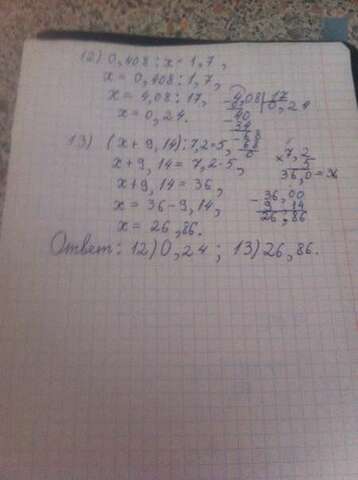 12) 0,408 : x = 1,7,
x = 0,408 : 1,7,
x = 4,08 : 17,
x = 0,24.
4,08 | 17
0,24
40
34
68
68
0
13) (x + 9,14) : 7,2 = 5,
x + 9,14 = 7,2 · 5,
x + 9,14 = 36,
x = 36 - 9,14,
x = 26,86.
× 7,2
5
36,0 = 36
- 36,00
9,14
26,86
Ответ: 12) 0,24; 13) 26,86.